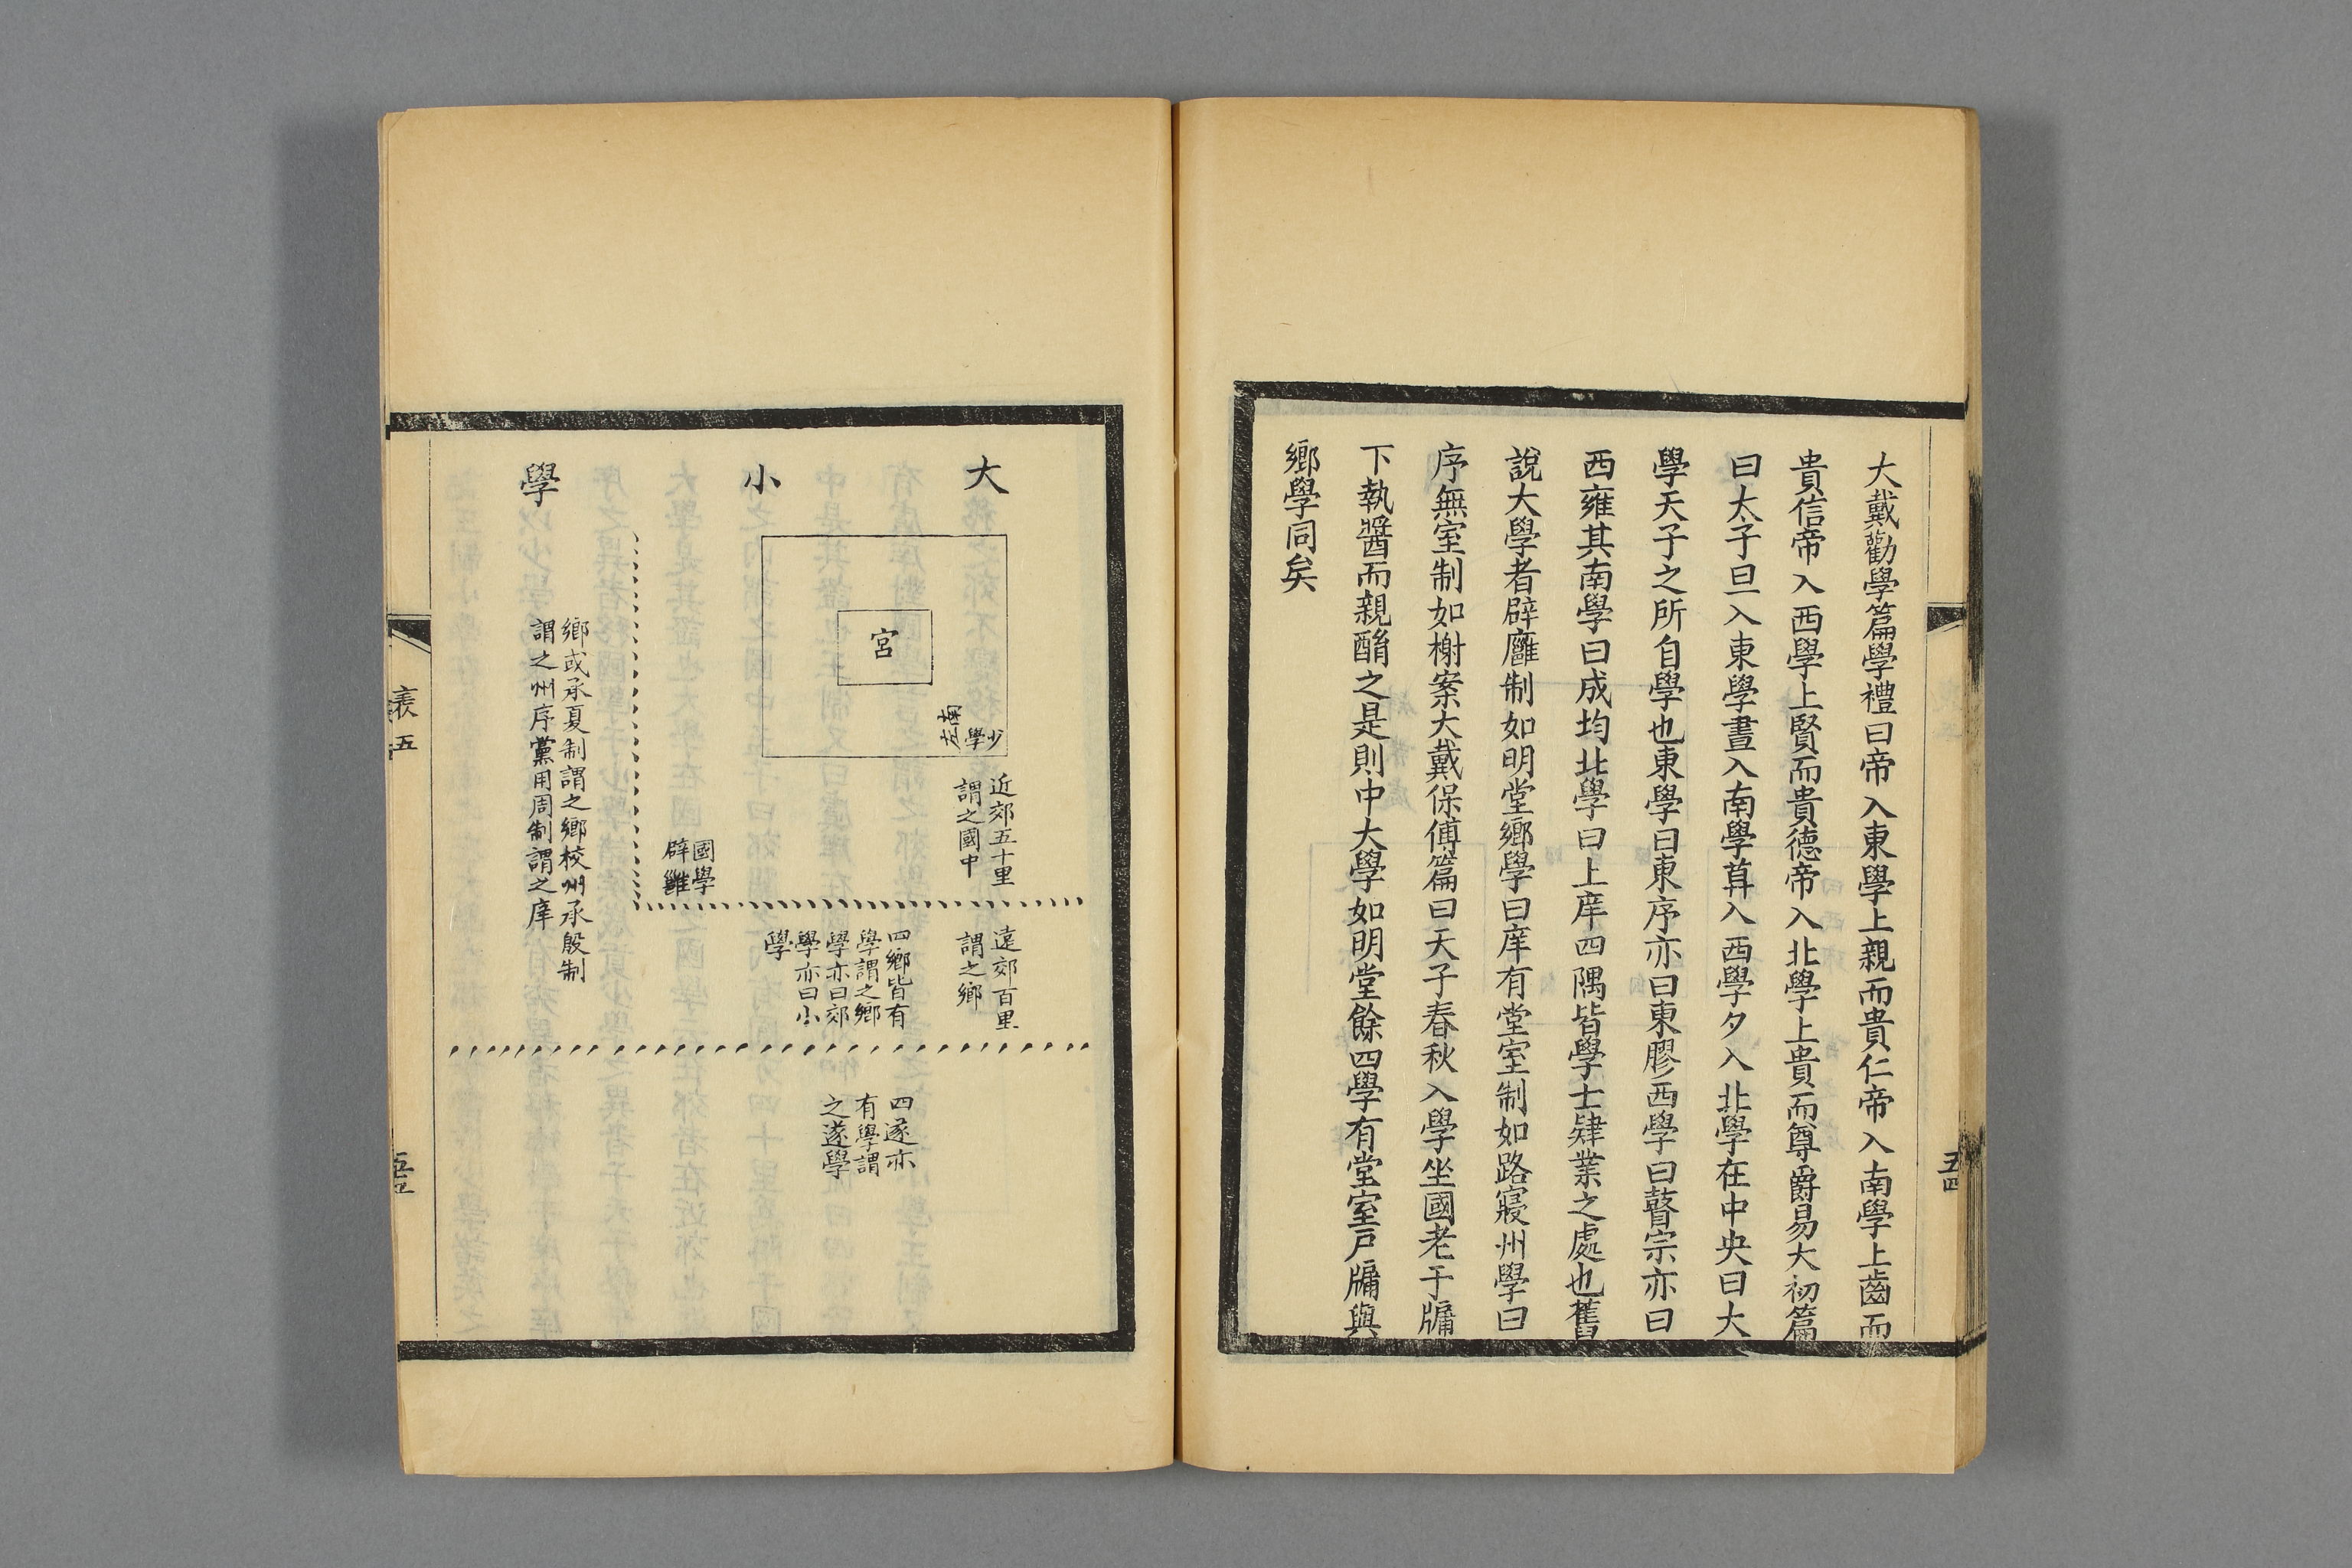 大戴勸學篇學禮曰帝入東學上親而貴仁帝入南學上齒而
貴信帝入西學上賢而貴德帝入北學上貴而尊爵易大初篇
曰太子旦入東學晝入南學莫入西學夕入北學在中央曰大
學天子之所自學也東學曰東序亦曰東膠西學曰瞽宗亦曰
西雍其南學曰成均北學曰上庠四隅皆學士肄業之處也舊
說大學者辟廱制如明堂鄉學曰庠有堂室制如路寢州學曰
序無室制如榭案大戴保傅篇曰天子春秋入學坐國老于牖
下執醬而親酳之是則中大學如明堂餘四學有堂室戸牖與
鄉學同矣
五四
大
小
學
宮
少學
南之左
近郊五十里
謂之國中
國學
辟雝
遠郊百里
謂之鄉
四鄉皆有
學謂之鄉
學亦曰郊
學亦曰小
學
四遂亦
有學謂
之遂學
鄉或承夏制謂之鄉校州承殷制
謂之州序黨用周制謂之庠
表五
五五